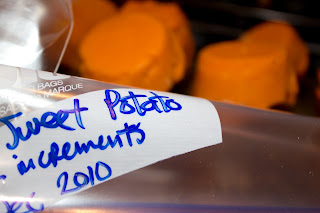 BAGS
MARQUE
Sweet Potato
increments
2010